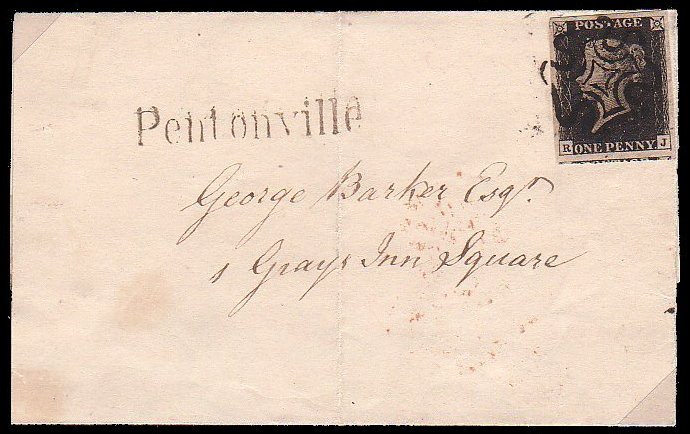 POSTAGE
R ONE PENNY J
Pentonville
George Barker Esqr.
1 Grays Inn Square